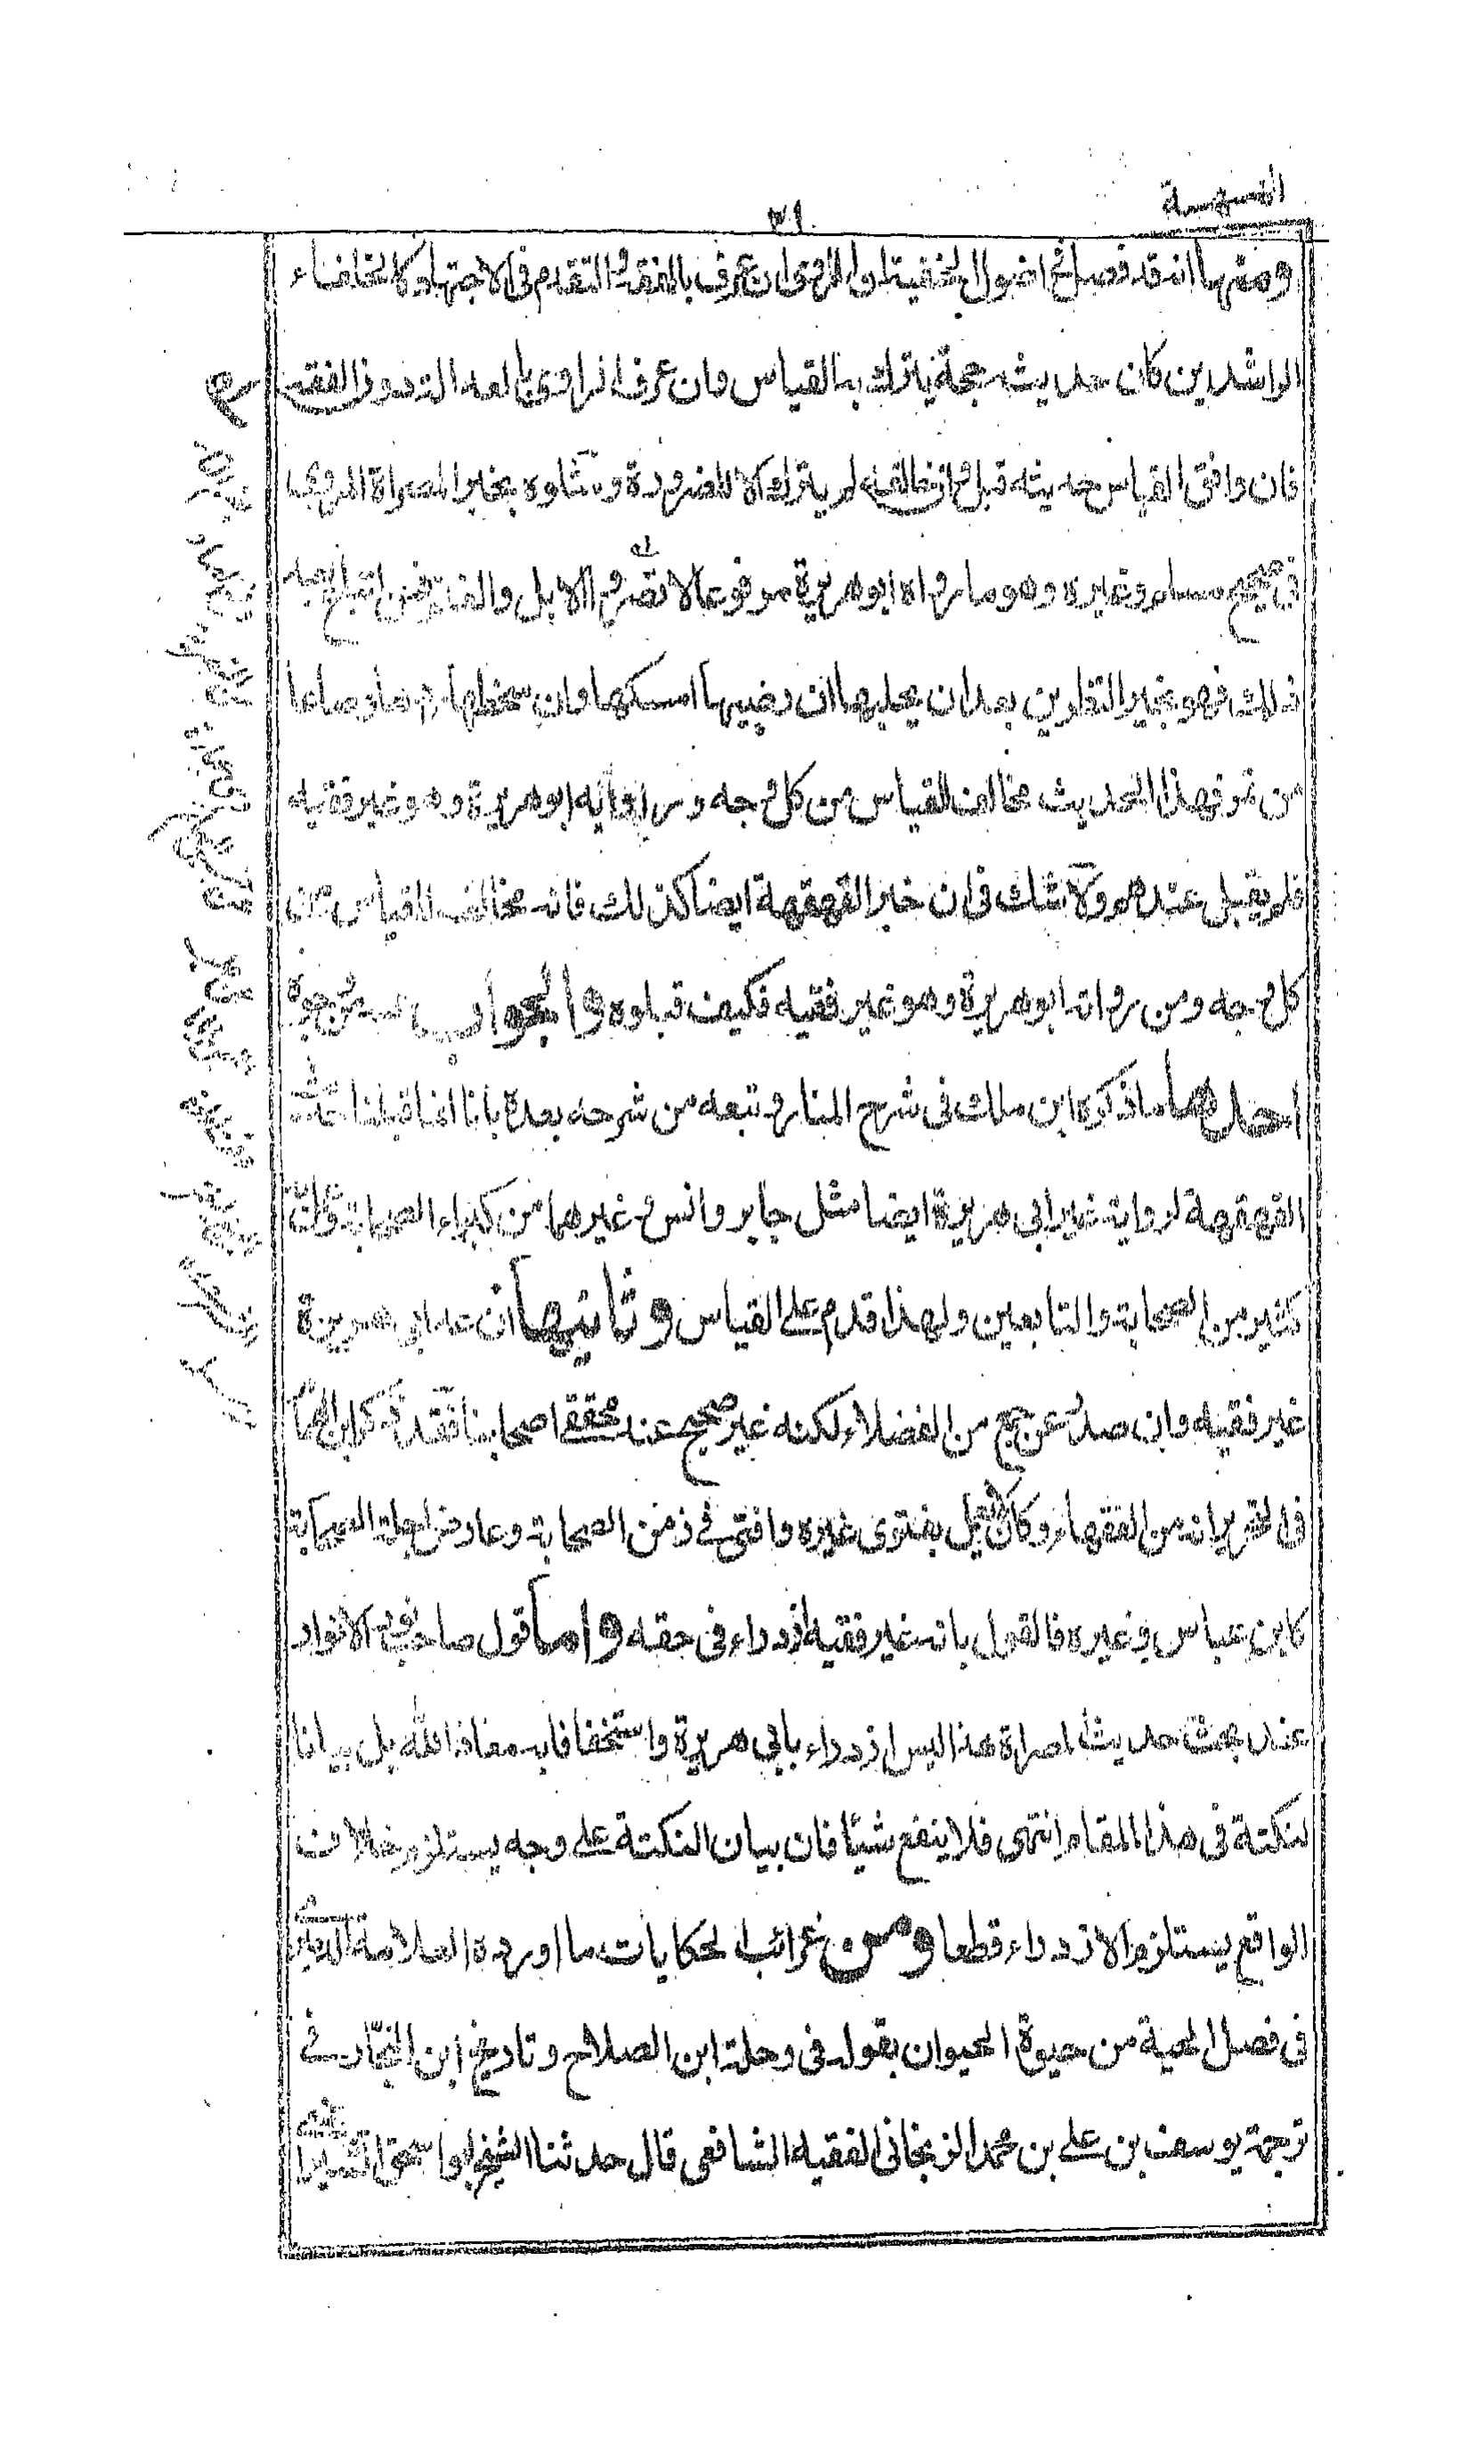 القهقهة
٣١
ومنها انه قد فصل في اصول الحنفية ان الراوي ان عرف بالفقه والتقدم في الاجتهاد كالخلفاء
الراشدين كان حديثه حجة يترك به القياس وان عرف الراوي بالعدالة دون الفقه
فان وافق القياس حديثه قبل وان خالفه لم يترك الا للضرورة ومثلوه بخبر المصراة المروي
في صحيح مسلم وغيره وهو ما رواه ابو هريرة مرفوعا لا تصروا الابل والغنم فمن ابتاع بعد
ذلك فهو بخير النظرين بعد ان يحلبها ان رضيها امسكها وان سخطها ردها وصاعا
من تمر فهذا الحديث مخالف للقياس من كل وجه وراويه ابو هريرة وهو غير فقيه
فلم يقبل عندهم ولا شك في ان خبر القهقهة ايضا كذلك فانه مخالف للقياس من
كل وجه ومن رواته ابو هريرة وهو غير فقيه فكيف قبلوه والجواب عنه من وجوه
احدها ما ذكره ابن ملك في شرح المنار وتبعه من شرحه بعده بانا انما قبلنا حديث
القهقهة لرواية غير ابي هريرة ايضا مثل جابر وانس وغيرهما من كبراء الصحابة
كثير من الصحابة والتابعين ولهذا قدم على القياس وثانيها ان عد ابي هريرة
غير فقيه وان صدر عن جمع من الفضلاء لكنه غير صحيح عند محققي اصحابنا فقد ذكر ابن الهمام
في التحرير انه من الفقهاء وكان لا يعمل بفتوى غيره وافتى في زمن الصحابة وعارض اجلة الصحابة
كابن عباس وغيره فالقول بانه غير فقيه ازدراء في حقه واما قول صاحب نور الانوار
عند بحث حديث المصراة هذا ليس ازدراء بابي هريرة واستخفافا به معاذ الله بل بيانا
لنكتة في هذا المقام انتهى فلا ينفع شيئا فان بيان النكتة على وجه يستلزم خلاف
الواقع يستلزم الازدراء قطعا ومن غرائب الحكايات ما اورده العلامة الدميري
في فصل الحية من حيوة الحيوان بقوله في رحلة ابن الصلاح وتاريخ ابن النجار في
ترجمة يوسف بن علي بن محمد الزنجاني الفقيه الشافعي قال حدثنا الشيخ ابو اسحق الشيرازي